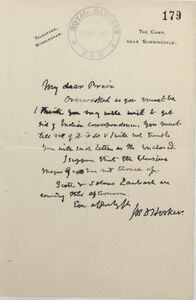 179
TELEGRAMS,
WINDLESHAM.
THE CAMP,
NEAR SUNNINGDALE.
ROYAL GARDENS
KEW
My dear Prain
Overworked as you must be
I think you may wish to get
rid of Indian correspondence. You must
tell me if it is so & I will not trouble
you with such letters as the enclosed.
I suppose that the elusive
has not turned up.
Scott & are
coming this afternoon.
Jos D Hooker.